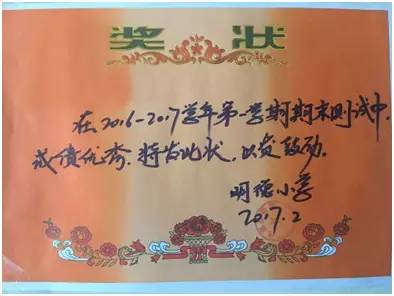 奖状
在2016-2017学年第一学期期末测试中,
成绩优秀.特发此状,以资鼓励.
明德小学
2017.2